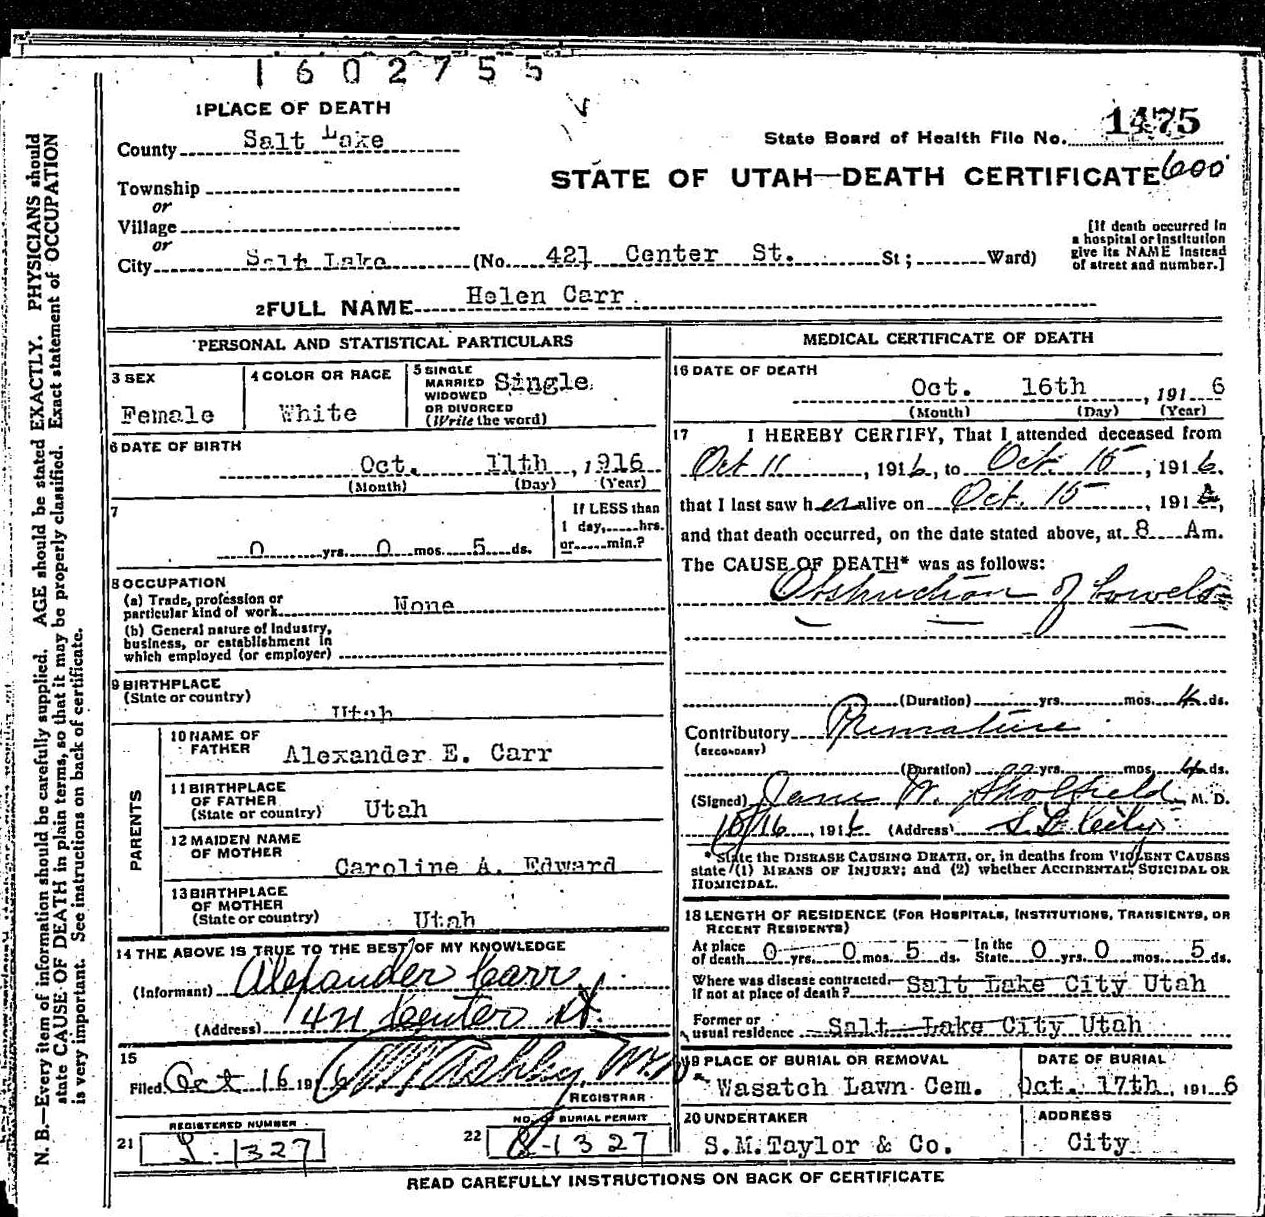 1602755
1 PLACE OF DEATH
County Salt Lake
State Board of Health File No. 1475
Township
or
STATE OF UTAH—DEATH CERTIFICATE 600
Village
or
City Salt Lake (No. 421 Center St. St; Ward)
[If death occurred in
a hospital or institution
give its NAME instead
of street and number.]
2 FULL NAME Helen Carr
PERSONAL AND STATISTICAL PARTICULARS
3 SEX
Female
4 COLOR OR RACE
White
5 SINGLE
MARRIED
WIDOWED
OR DIVORCED
(Write the word)
Single
6 DATE OF BIRTH
Oct. 11th, 1916
(Month) (Day) (Year)
7
0 yrs. 0 mos. 5 ds.
If LESS than
1 day, hrs.
or min.?
8 OCCUPATION
(a) Trade, profession or
particular kind of work None
(b) General nature of Industry,
business, or establishment in
which employed (or employer)
9 BIRTHPLACE
(State or country)
Utah
PARENTS
10 NAME OF
FATHER Alexander E. Carr
11 BIRTHPLACE
OF FATHER
(State or country) Utah
12 MAIDEN NAME
OF MOTHER
Caroline A. Edward
13 BIRTHPLACE
OF MOTHER
(State or country) Utah
14 THE ABOVE IS TRUE TO THE BEST OF MY KNOWLEDGE
(Informant) Alexander Carr
(Address) 421 Center St.
15
Filed Oct 16 1916 Ashby, M.D.
REGISTRAR
REGISTERED NUMBER
21 1327
NO. OF BURIAL PERMIT
22 1327
MEDICAL CERTIFICATE OF DEATH
16 DATE OF DEATH
Oct. 16th, 1916
(Month) (Day) (Year)
17 I HEREBY CERTIFY, That I attended deceased from
Oct 11, 1916, to Oct. 15, 1916.
that I last saw her alive on Oct. 15, 1916,
and that death occurred, on the date stated above, at 8 Am.
The CAUSE OF DEATH* was as follows:
Obstruction of bowels
(Duration) yrs. mos. 4 ds.
Contributory Premature
(SECONDARY)
(Duration) yrs. mos. 4 ds.
(Signed) Jane W. Skolfield, M. D.
10/16, 1916 (Address) S L City
* State the DISEASE CAUSING DEATH, or, in deaths from VIOLENT CAUSES
state (1) MEANS OF INJURY; and (2) whether ACCIDENTAL, SUICIDAL OR
HOMICIDAL.
18 LENGTH OF RESIDENCE (FOR HOSPITALS, INSTITUTIONS, TRANSIENTS, OR
RECENT RESIDENTS)
At place
of death 0 yrs. 0 mos. 5 ds. In the
State 0 yrs. 0 mos. 5 ds.
Where was disease contracted
if not at place of death? Salt Lake City Utah
Former or
usual residence Salt Lake City Utah
19 PLACE OF BURIAL OR REMOVAL
Wasatch Lawn Cem.
DATE OF BURIAL
Oct. 17th, 1916
20 UNDERTAKER
S.M.Taylor & Co.
ADDRESS
City
READ CAREFULLY INSTRUCTIONS ON BACK OF CERTIFICATE
N. B.—Every item of information should be carefully supplied. AGE should be stated EXACTLY. PHYSICIANS should
state CAUSE OF DEATH in plain terms, so that it may be properly classified. Exact statement of OCCUPATION
is very important. See instructions on back of certificate.